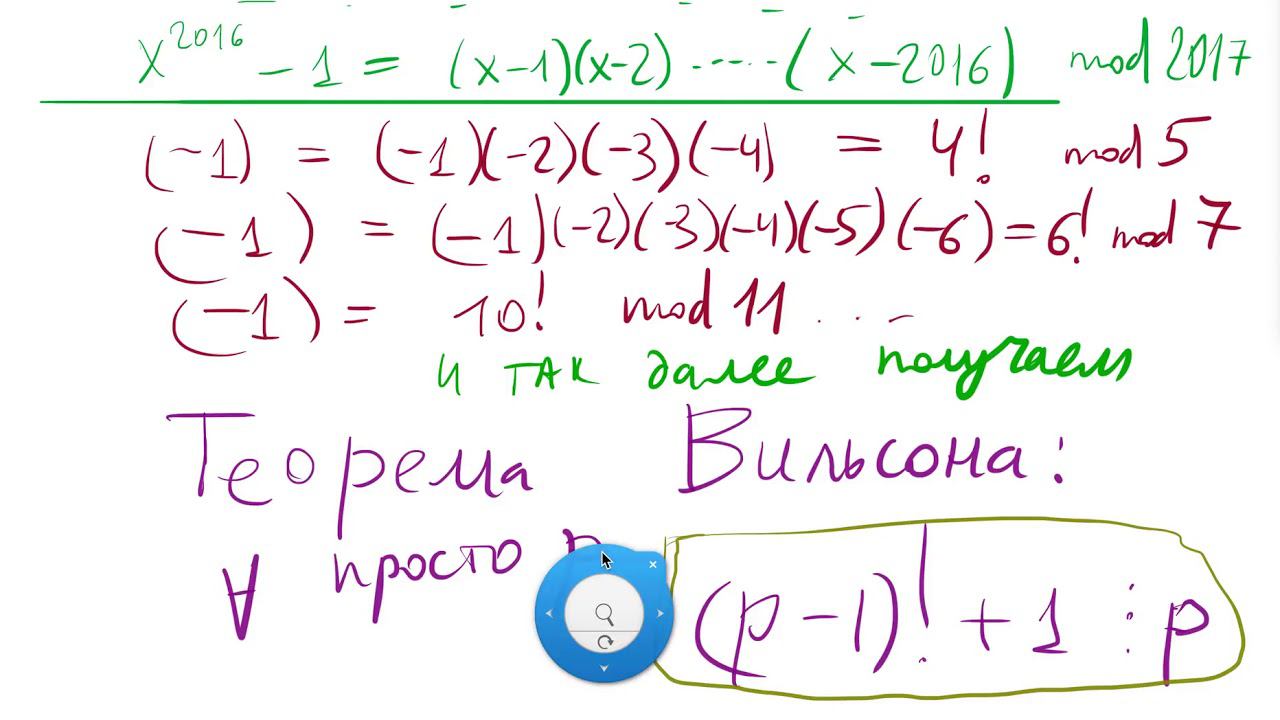 x^2016 - 1 = (x-1)(x-2) ····· (x-2016) mod 2017
(-1) = (-1)(-2)(-3)(-4) = 4! mod 5
(-1) = (-1)(-2)(-3)(-4)(-5)(-6) = 6! mod 7
(-1) = 10! mod 11 ...
и так далее получаем
Теорема Вильсона:
∀ просто p
(p-1)! + 1 ⋮ p